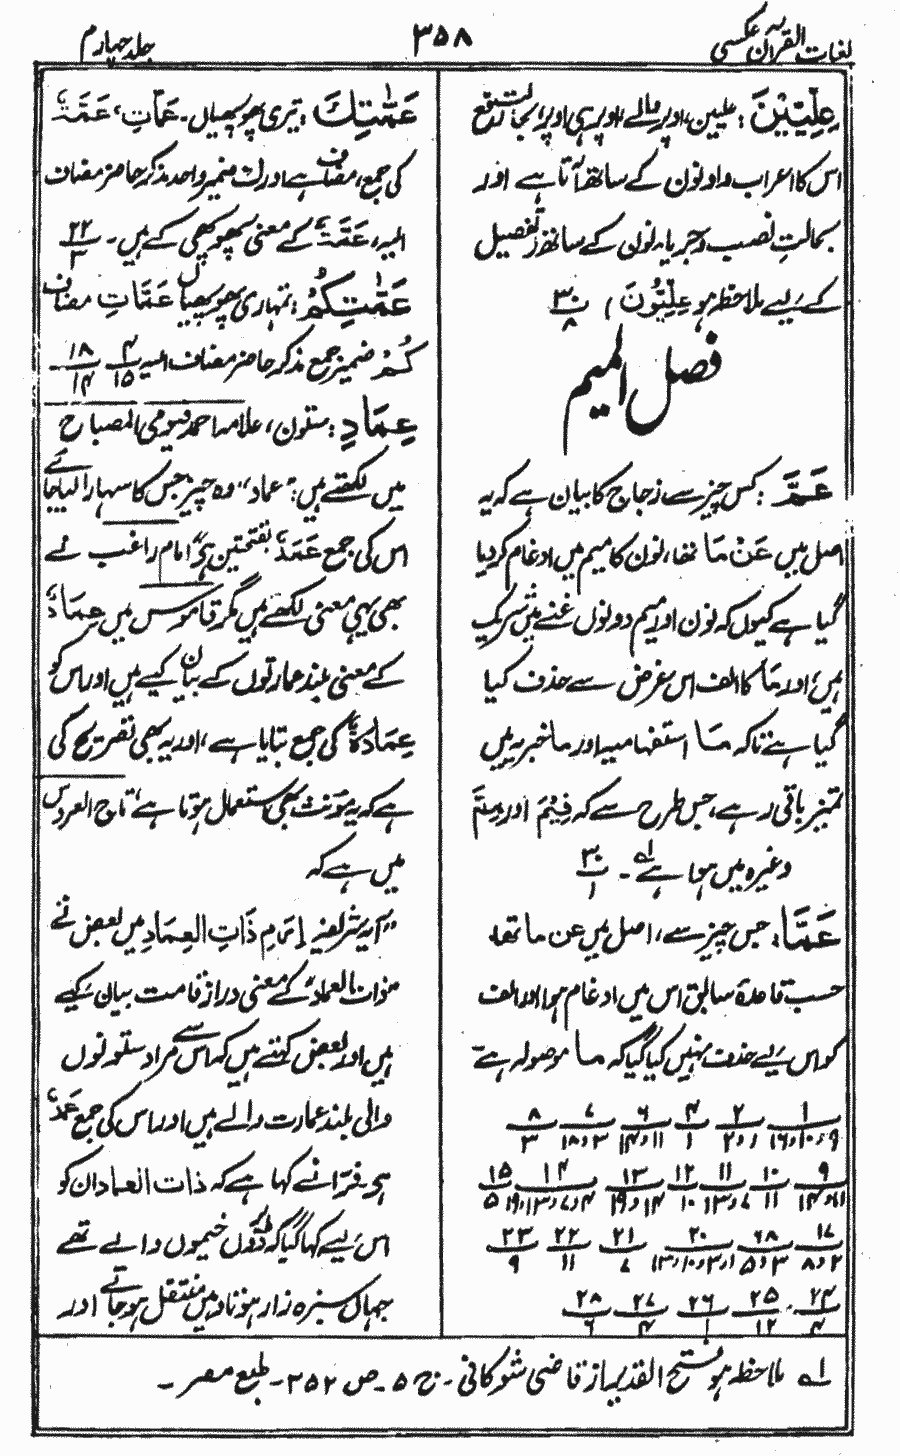 لغات القرآن عکسی
۳۵۸
جلد چہارم
عِلِّيِّيْنَ : علیین، اوپر والے، اوپر ہی اوپر، بحالت رفع
اس کا اعراب واو نون کے ساتھ آتا ہے اور
بحالتِ نصب وجر یا، نون کے ساتھ، تفصیل
کے لیے ملاحظہ ہو عِلِّيُّوْنَ ) ۳۰/۸
فصل المیم
عَمَّ : کس چیز سے زجاج کا بیان ہے کہ یہ
اصل میں عَنْ مَا تھا، نون کا میم میں ادغام کردیا
گیا ہے کیوں کہ نون اور میم دونوں غنے میں شریک
ہیں، اور مَا کا الف اس غرض سے حذف کیا
گیا ہے تاکہ مَا استفہامیہ اور ما خبریہ میں
تمیز باقی رہے، جس طرح سے کہ فِيْمَ اور مِمَّ
وغیرہ میں ہوا ہے لہ ۔ ۳۰/۱
عَمَّا : جس چیز سے، اصل میں عن ما تھا،
حسب قاعدۂ سابق اس میں ادغام ہوا اور الف
کو اس لیے حذف نہیں کیا گیا کہ ما موصولہ ہے
عَمّٰتِكَ : تیری پھوپھیاں۔ عَمّات، عَمَّةٌ
کی جمع، مضاف ہے اور ك ضمیر واحد مذکر حاضر مضاف
الیہ، عَمَّةٌ کے معنی پھوپھی کے ہیں۔ ۲۲/۳
عَمّٰتِكُمْ : تمہاری پھوپھیاں عَمَّات مضاف
كُمْ ضمیر جمع مذکر حاضر مضاف الیہ ۴/۱۵ ۱۸/۱۴
عِمَادٍ : ستون، علامہ احمد فیومی المصباح
میں لکھتے ہیں: "عماد" وہ چیز جس کا سہارا لیا جائے
اس کی جمع عَمَدٌ بفتحتین ہے" امام راغب نے
بھی یہی معنی لکھے ہیں مگر قاموس میں عِمَادٌ
کے معنی بلند عمارتوں کے بیان کیے ہیں اور اس کو
عِمَادَةٌ کی جمع بتایا ہے، اور یہ بھی تصریح کی
ہے کہ یہ مؤنث بھی استعمال ہوتا ہے، تاج العروس
میں ہے کہ
"آیہ شریفہ إِرَمَ ذَاتِ الْعِمَادِ میں بعض نے
"ذات العماد" کے معنی دراز قامت بیان کیے
ہیں اور بعض کہتے ہیں کہ اس سے مراد ستونوں
والی بلند عمارت والے ہیں اور اس کی جمع عَمَدٌ
ہے۔ فرّا نے کہا ہے کہ ذات العماد ان کو
اس لیے کہا گیا کہ وہ لوگ خیموں والے تھے
جہاں سبزہ زار ہوتا وہیں منتقل ہو جاتے اور
لہ ملاحظہ ہو فتح القدیر از قاضی شوکانی۔ ج ۵۔ ص ۳۵۲۔ طبع مصر۔